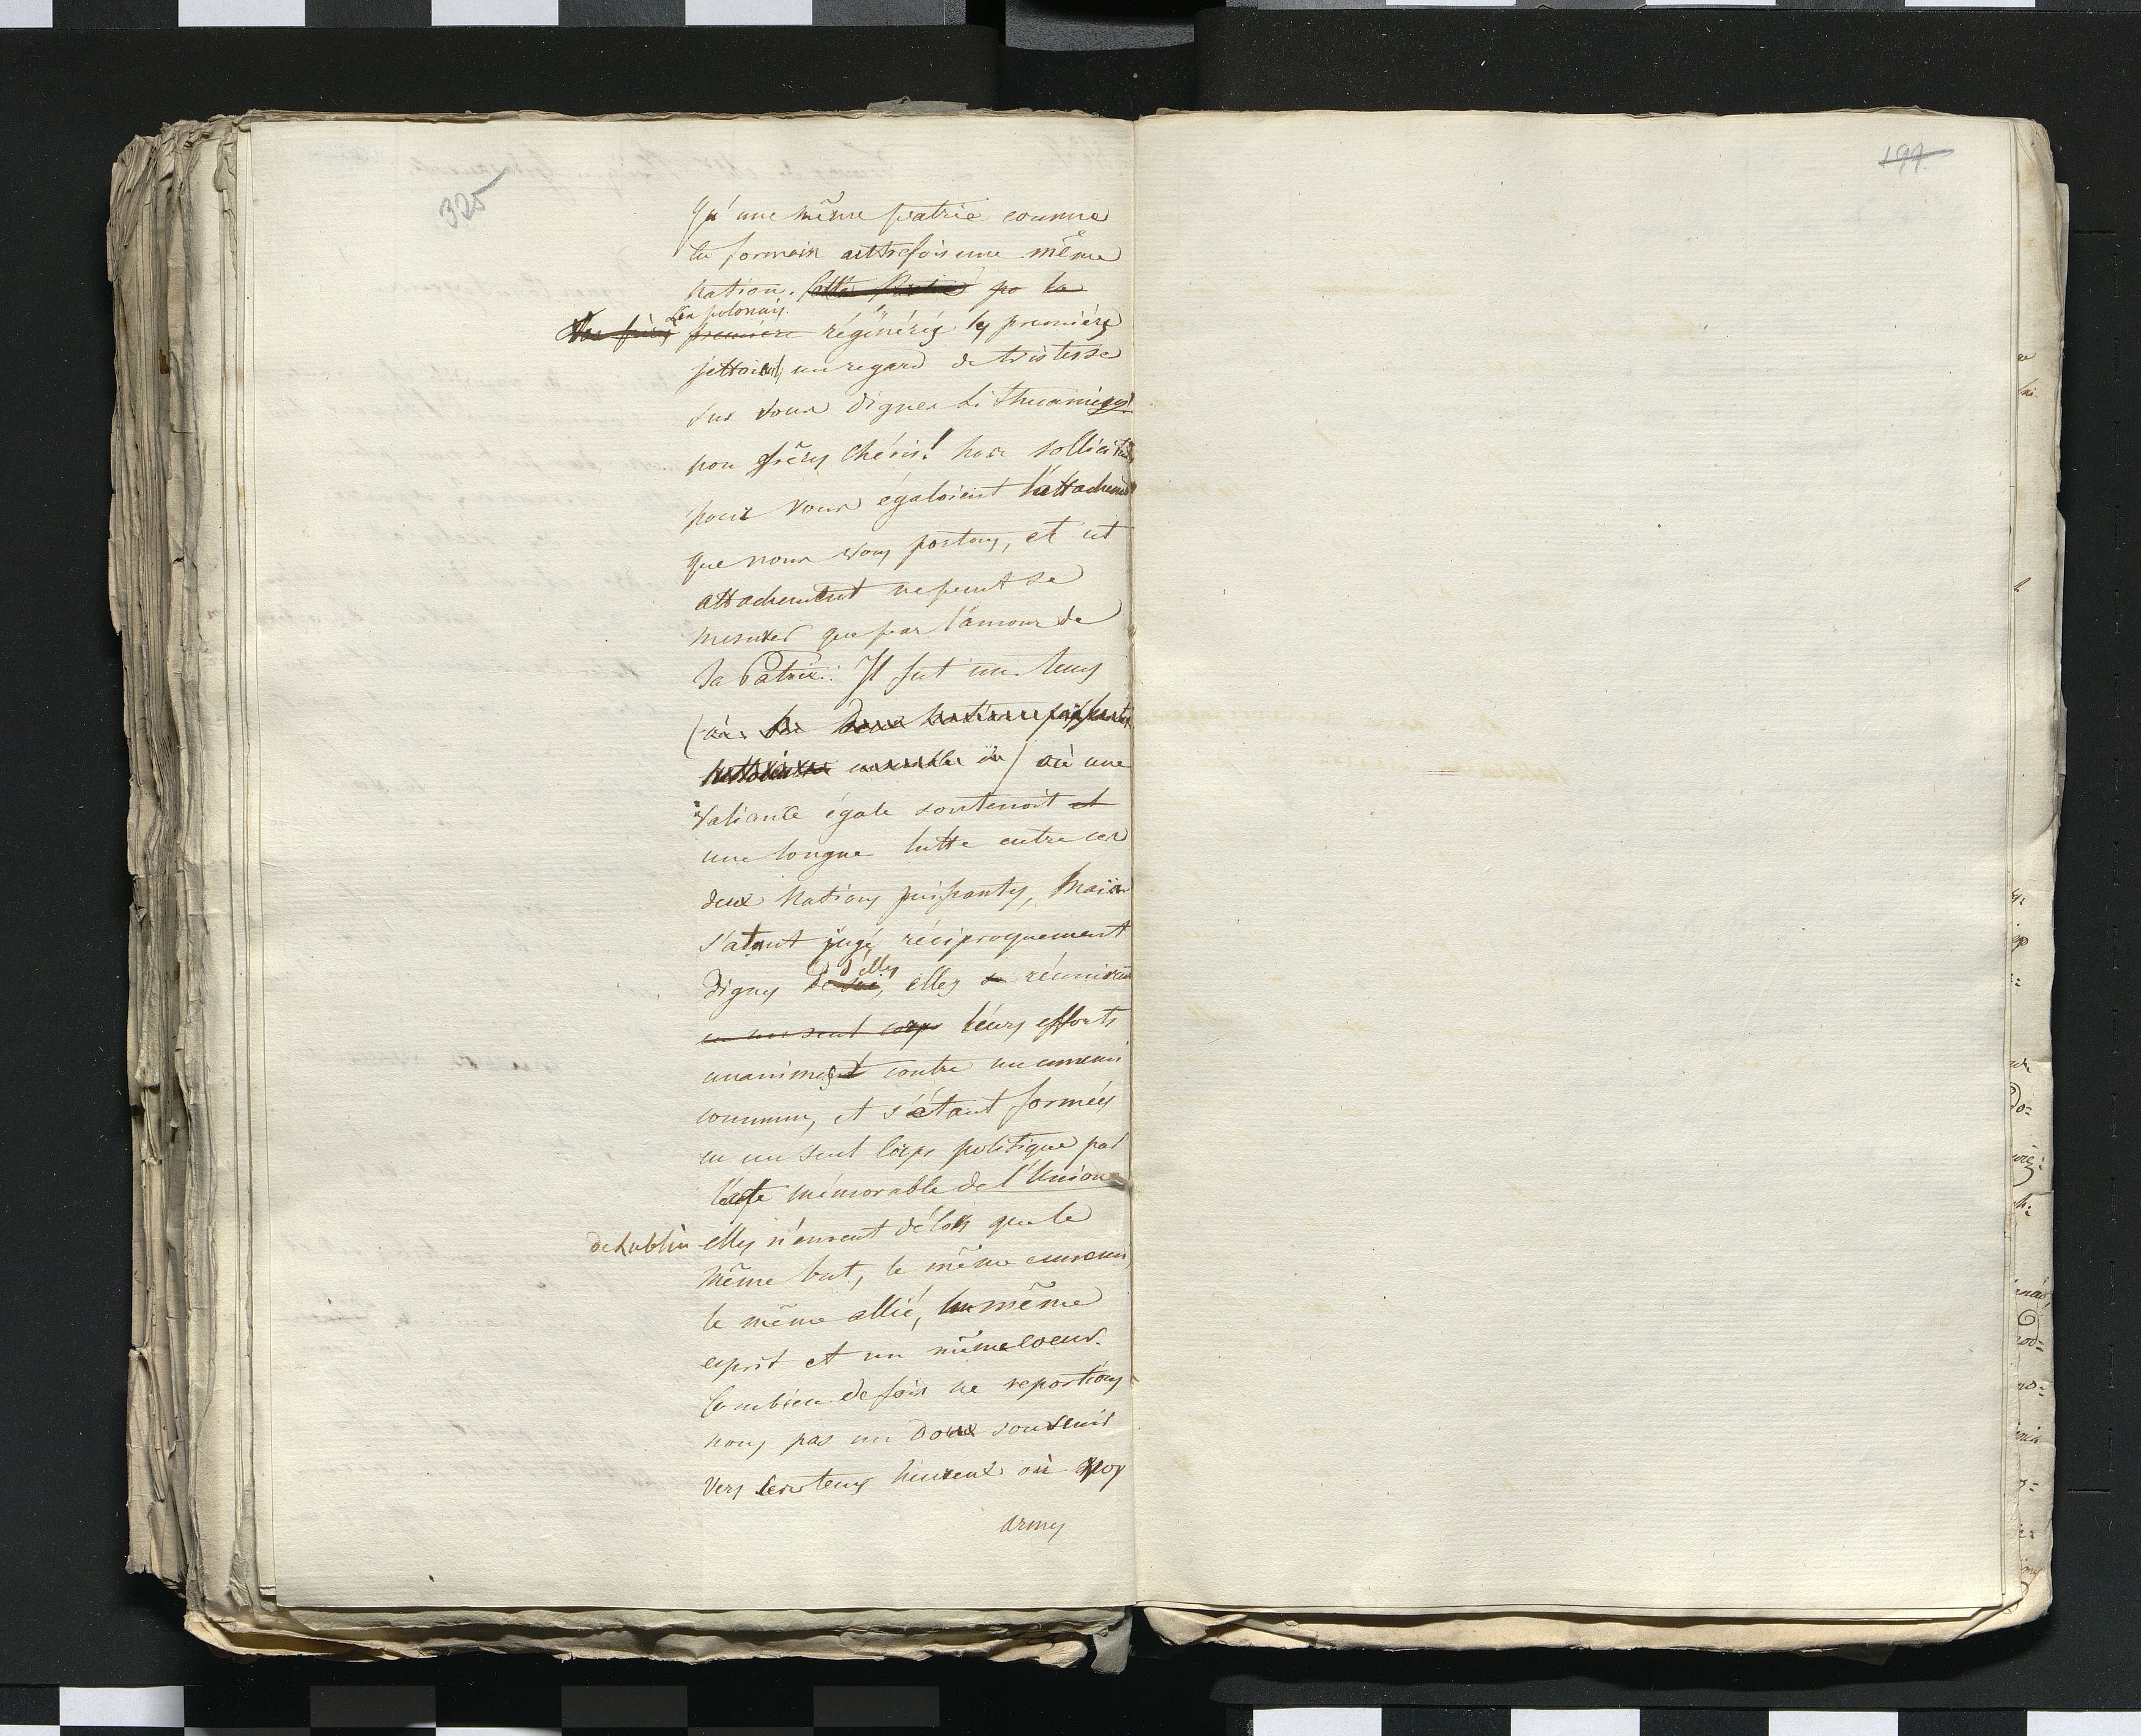 325
197
qu'une même patrie comme
ils formoin auttrefois une même
nation. Cette po la
Les polonais
Vos frères première régénérés les premiérs
jettoient un regard de tristesse
sur vous dignes Lithuaniens!
nos frèrs chéris! nos sollicitudes
pour vous égaloient l'attachement
que nous vous portons, et cet
attachement ne peut se
mesurer que par l'amour de
la Patrie. Il fut un tems
(où les deux nations puissantes
luttoient ensemble) où une
valiance égale soutenoit et
une longue lutte entre ces
deux Nations puissantes, mais
s'etant jugés réciproquement
d'elles
dignes de soi, elles se réunirent
en un seul corps leurs efforts
unanimes et contre un ennemi
commun, et s'étant formées
en un seul corps politique par
l'acte mémorable de l'Union
de Lublin elles n'eurent délors que le
même but, le même ennemi
le même allié, un même
esprit et un même coeur.
Combien de fois ne reportions
nous pas un doux souvenir
vers ces tems heureux où nos
armes